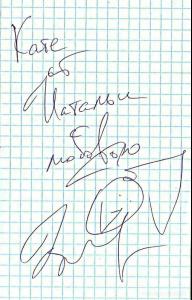 Кате
от
Натальи
с
любовью